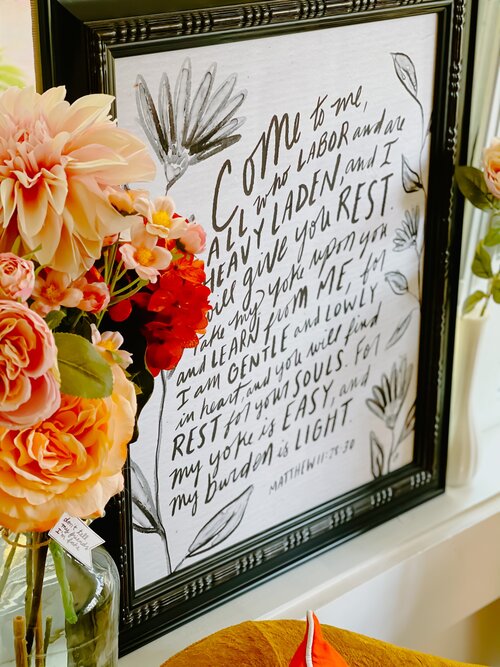 Come to me,
ALL who LABOR and are
HEAVY LADEN, and I
will give you REST.
Take my yoke upon you
and LEARN from ME, for
I am GENTLE and LOWLY
in heart, and you will find
REST for your SOULS. FOR
my yoke is EASY, and
my burden is LIGHT.
MATTHEW 11:28-30
don't tell
my friends
I'm fake